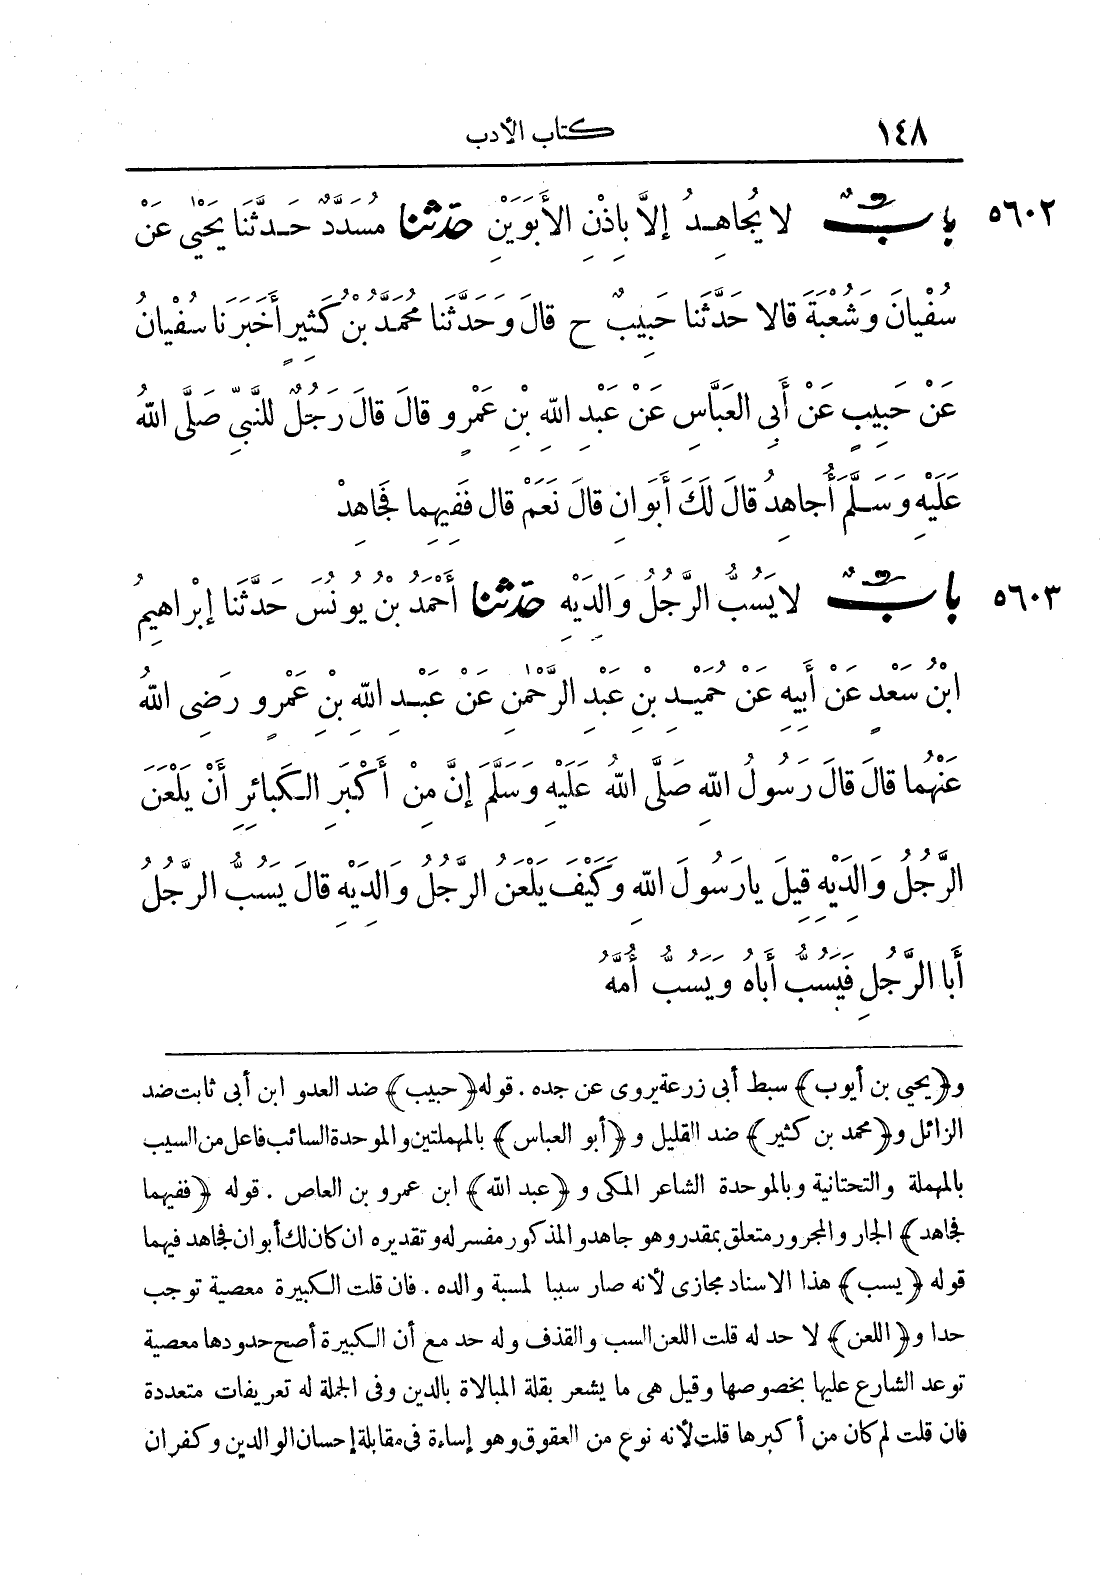 ١٤٨
كتاب الأدب
٥٦٠٢ بَابٌ لا يُجاهِدُ إلاَّ بِإذْنِ الأَبَوَيْنِ حَدَّثَنَا مُسَدَّدٌ حَدَّثَنَا يَحْيٰى عَنْ
سُفْيانَ وَشُعْبَةَ قالا حَدَّثَنا حَبِيبٌ ح قالَ وَحَدَّثَنا مُحَمَّدُ بْنُ كَثِيرٍ أَخْبَرَنا سُفْيانُ
عَنْ حَبِيبٍ عَنْ أَبِي العَبَّاسِ عَنْ عَبْدِ اللهِ بْنِ عَمْرٍو قالَ قالَ رَجُلٌ للنَّبِيِّ صَلَّى اللهُ
عَلَيْهِ وَسَلَّمَ أُجاهِدُ قالَ لَكَ أَبَوانِ قالَ نَعَمْ قال فَفِيهِما فَجَاهِدْ
٥٦٠٣ بَابٌ لا يَسُبُّ الرَّجُلُ وَالِدَيْهِ حَدَّثَنَا أَحْمَدُ بْنُ يُونُسَ حَدَّثَنا إبْراهِيمُ
ابْنُ سَعْدٍ عَنْ أَبِيهِ عَنْ حُمَيْدِ بْنِ عَبْدِ الرَّحْمٰنِ عَنْ عَبْدِ اللهِ بْنِ عَمْرٍو رَضِيَ اللهُ
عَنْهُما قالَ قالَ رَسُولُ اللهِ صَلَّى اللهُ عَلَيْهِ وَسَلَّمَ إنَّ مِنْ أَكْبَرِ الكَبائِرِ أَنْ يَلْعَنَ
الرَّجُلُ وَالِدَيْهِ قِيلَ يا رَسُولَ اللهِ وَكَيْفَ يَلْعَنُ الرَّجُلُ وَالِدَيْهِ قالَ يَسُبُّ الرَّجُلُ
أَبا الرَّجُلِ فَيَسُبُّ أَباهُ وَيَسُبُّ أُمَّهُ
و﴿يحيى بن أيوب﴾ سبط أبى زرعة يروى عن جده . قوله ﴿حبيب﴾ ضد العدو ابن أبى ثابت ضد
الزائل و﴿محمد بن كثير﴾ ضد القليل و﴿أبو العباس﴾ بالمهملتين والموحدة السائب فاعل من السيب
بالمهملة والتحتانية وبالموحدة الشاعر المكى و﴿عبد الله﴾ ابن عمرو بن العاص . قوله ﴿ففيهما
فجاهد﴾ الجار والمجرور متعلق بمقدر وهو جاهد والمذكور مفسر له وتقديره ان كان لك أبوان فجاهد فيهما
قوله ﴿يسب﴾ هذا الاسناد مجازى لأنه صار سببا لمسبة والده . فان قلت الكبيرة معصية توجب
حدا و﴿اللعن﴾ لا حد له قلت اللعن السب والقذف وله حد مع أن الكبيرة أصح حدودها معصية
توعد الشارع عليها بخصوصها وقيل هى ما يشعر بقلة المبالاة بالدين وفى الجملة له تعريفات متعددة
فان قلت لم كان من أكبرها قلت لأنه نوع من العقوق وهو إساءة فى مقابلة إحسان الوالدين وكفران